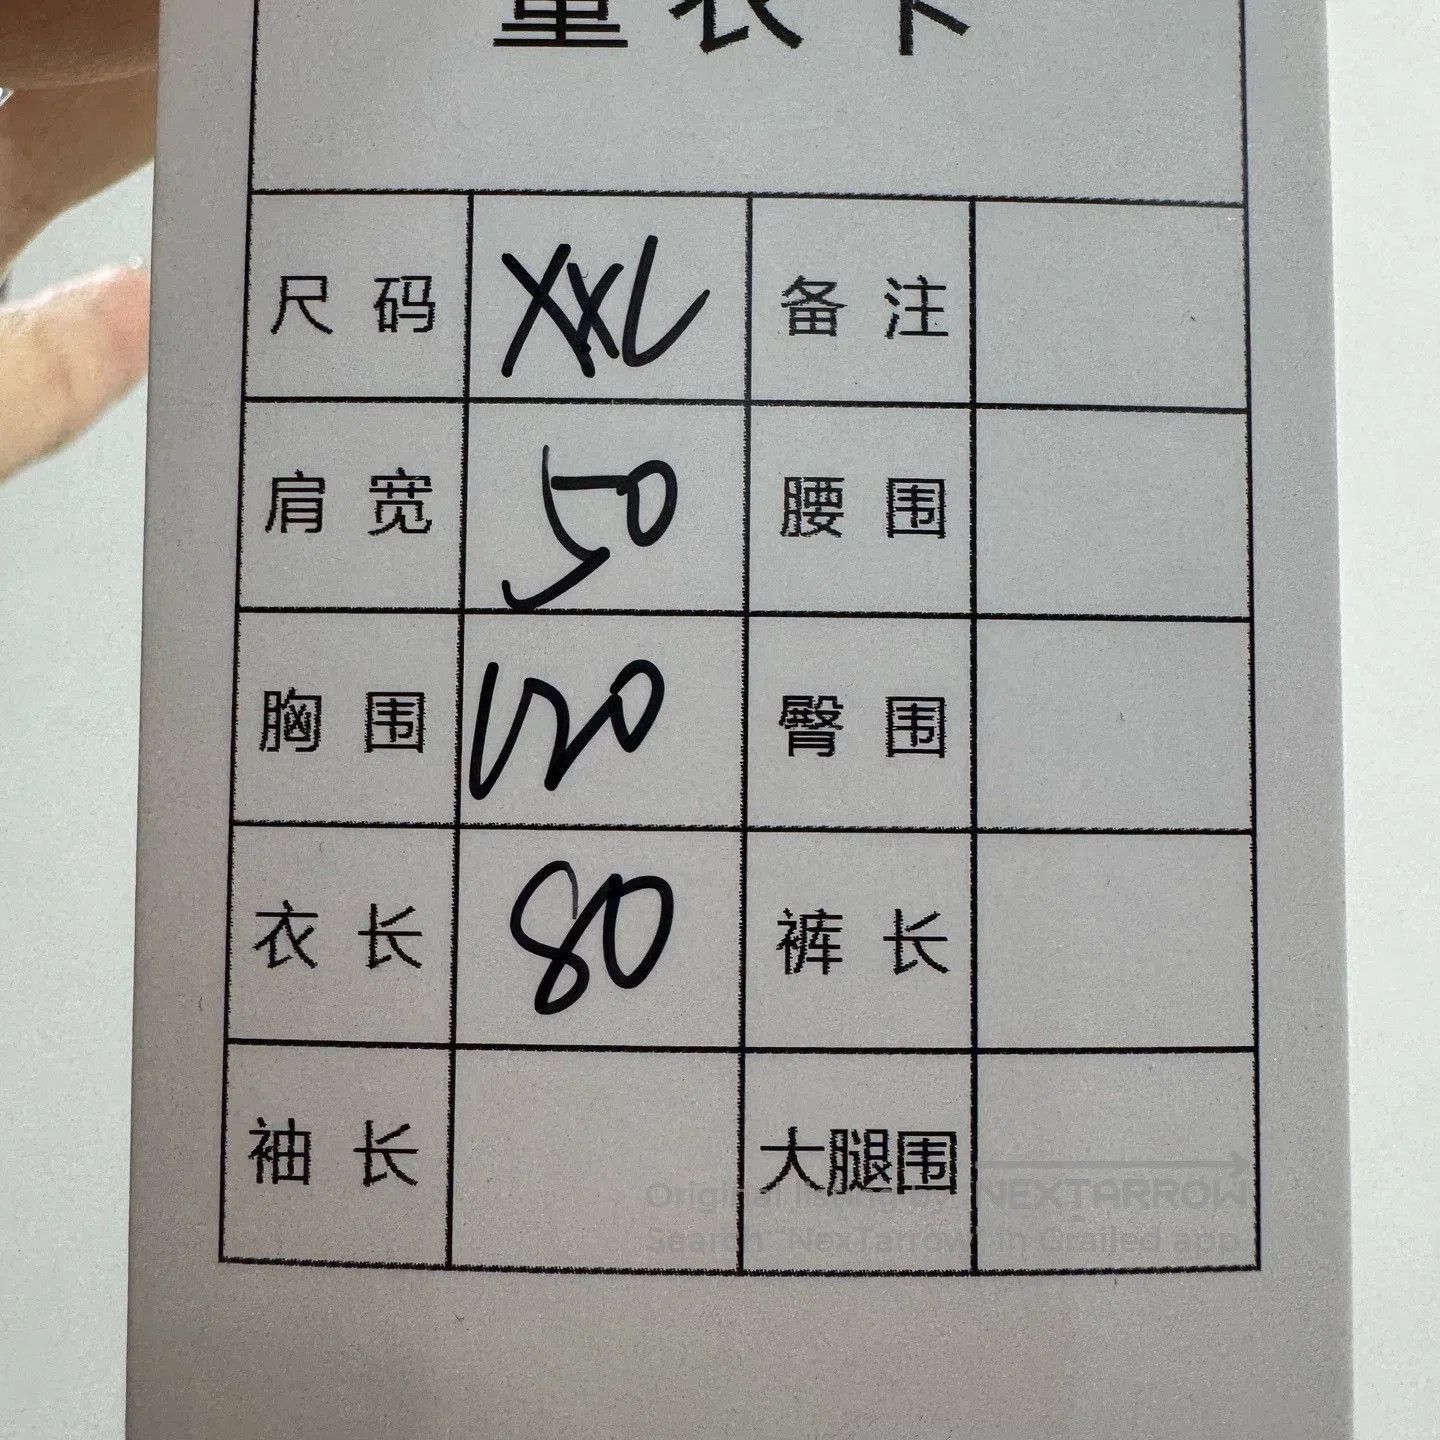 量衣卡
尺码 XXL 备注
肩宽 50 腰围
胸围 120 臀围
衣长 80 裤长
袖长 大腿围
NEXTARROW
Search "NexTarrow" in Grailed app